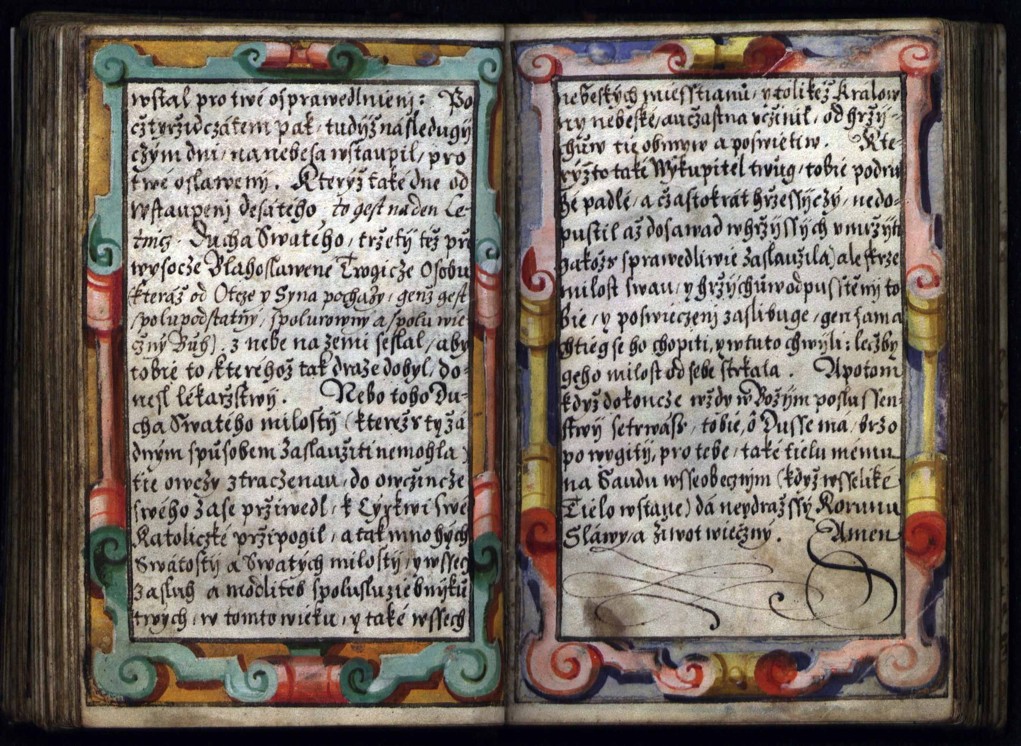 wstal pro twé osprawedlnienj: Po
cžtyržidcžátém pak, tudyžnásledugý
cżým dni, na nebesa wstaupil, pro
twé oslawenj. Kterýž také dne od
wstaupenj desátého to gest na den Le-
tnicz. Ducha Swatého, tržetý též prž
wysocže Blahoslawené Trogicže Osobu
(kteráž od Otcze y Syna pocházý, genž gest
spolupodstatný, spolurowný a spolu wie
cžný Bůh). z nebe na zemi seslal, aby
tobie to, kteréhož tak draze dobyl, do-
nesl lékařstwij. Nebo toho Du-
cha Swatého milostý (kteréžs ty žá
dným spůsobem zasłaužiti nemohla)
tie owcžy ztracženau, do owcžincže
swého zase pržiwedl, k Cýrkwi swé
Katolicžké pržipogil, a tak mnohých
Swátostý a Swatých milostý, y wssech
zásluh a modliteb spolusluziebnýků
twých, w tomto wieku, y také wssech
nebeských miesstianů, w tolikéž Kralow
ny nebeské, aučastna učinil, od hržý-
chůw tie obmyw a poswietiw. Kte-
rýžto také Wykupitel twůg, tobie podru
hé padlé, a cžastokrát hržessýczý, nedo-
pustil až dosawad w hržýssých umržýti
(jakožs sprawedliwie zaslaužila) ale skrze
milost swau, y hržýchůw odpusstienj to
bie, y poswiecženj zaslibuge, gen sama
chtieg se ho chopiti, y w tuto chwýli: lecžby
geho milost od sebe strkala. A potom
když dokoncže wždy w Božým poslussen-
stwý setrwáss, tobie, ô Dusse má, brzo
po wygitý, pro tebe, také tielu mému
na Saudu wsseobecným (když wsseliké
Tielo wstane) dá neydražssý Korunu
Sláwy a žiwot wiecžný. Amen